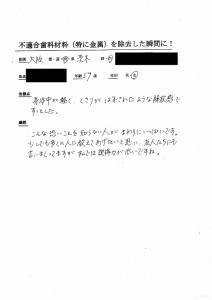 不適合歯科材料（特に金属）を除去した瞬間に！
住所 大阪 都・道・府・県 茨木 市
氏名 年齢 57歳 性別 男・女
体験談
身体中が軽く、くさりがはずされたような解放感で
すっとした。
感想
こんな恐いことを知らない人が、まわりにいっぱいです。
少しでも多くの人に伝えてあげたいと思い、友人たちにも
言いまくってますが私では説得力が低いですね。